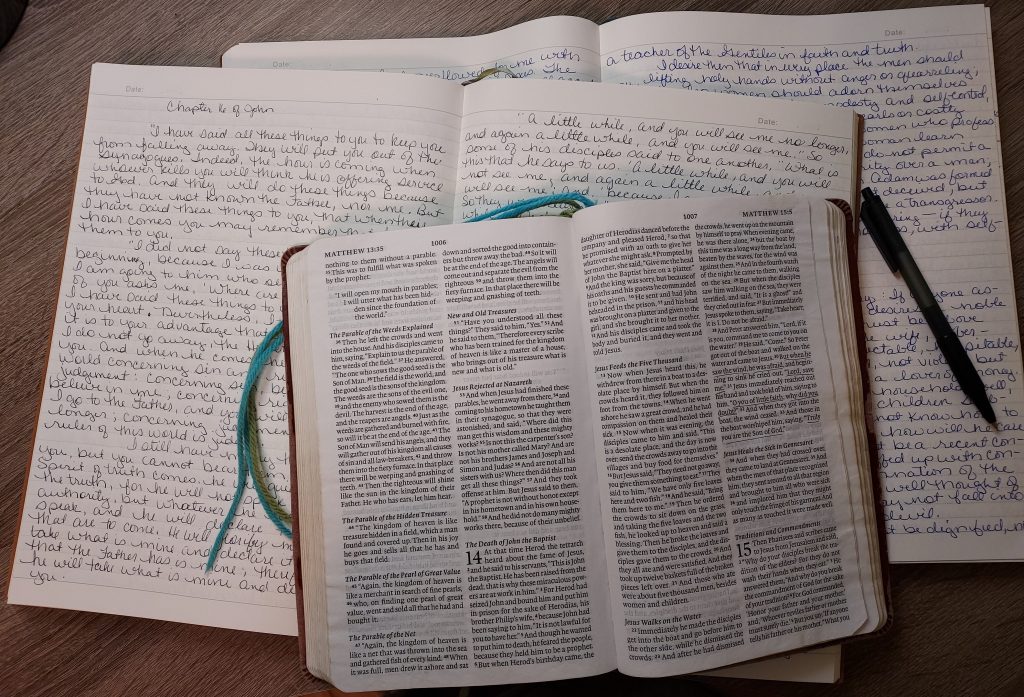 Date:
overflowed for me with
The
Date:
a teacher of the Gentiles in faith and truth.
I desire then that in every place the men should
lifting holy hands without anger or quarreling;
women should adorn themselves
modesty and self-control,
pearls or costly
women who profess
learn
do not permit a
over a man;
Adam was formed
deceived, but
a transgressor.
if they
with self-
If anyone as-
desires a noble
must be above
wife,
not violent but
a lover of money.
household well,
children
not know how to
how will he
be a recent con-
puffed up with con-
condemnation of the
well thought of
may not fall into
devil.
be dignified,
Date:
Chapter 16 of John
"I have said all these things to you to keep you
from falling away. They will put you out of the
synagogues. Indeed, the hour is coming when
whoever kills you will think he is offering service
to God. And they will do these things because
they have not known the Father, nor me. But
I have said these things to you, that when their
hour comes you may remember that I
them to you.
"I did not say these
beginning, because I was
I am going to him who se
of you asks me, 'Where are
I have said these things to
your heart. Nevertheless
it is to your advantage that
I do not go away, the
you. And when he comes
world concerning sin and
judgment: concerning s
believe in me; concerning
I go to the Father, and you
longer; concerning
ruler of this world is
"I still have
you, but you cannot bear
Spirit of truth comes, he
the truth, for he will no
authority, but whatever
speak, and he will declare
that are to come. He will glorify
take what is mine and declare it
that the Father has is mine; the
he will take what is mine and de
you.
Date:
"A little while, and you will see me no longer;
and again a little while, and you will see me." So
some of his disciples said to one another, "What is
this that he says to us, 'A little while, and you will
not see me, and again a little while, and you will
see me'; and, 'because I
So they
MATTHEW 13:35
1006
nothing to them without a parable.
35 This was to fulfill what was spoken
by the prophet:
"I will open my mouth in parables;
I will utter what has been hid-
den since the foundation of
the world."
The Parable of the Weeds Explained
36 Then he left the crowds and went
into the house. And his disciples came to
him, saying, "Explain to us the parable of
the weeds of the field." 37 He answered,
"The one who sows the good seed is the
Son of Man. 38 The field is the world, and
the good seed is the sons of the kingdom.
The weeds are the sons of the evil one,
39 and the enemy who sowed them is the
devil. The harvest is the end of the age,
and the reapers are angels. 40 Just as the
weeds are gathered and burned with fire,
so will it be at the end of the age. 41 The
Son of Man will send his angels, and they
will gather out of his kingdom all causes
of sin and all law-breakers, 42 and throw
them into the fiery furnace. In that place
there will be weeping and gnashing of
teeth. 43 Then the righteous will shine
like the sun in the kingdom of their
Father. He who has ears, let him hear.
The Parable of the Hidden Treasure
44 "The kingdom of heaven is like
treasure hidden in a field, which a man
found and covered up. Then in his joy
he goes and sells all that he has and
buys that field.
The Parable of the Pearl of Great Value
45 "Again, the kingdom of heaven is
like a merchant in search of fine pearls,
46 who, on finding one pearl of great
value, went and sold all that he had and
bought it.
The Parable of the Net
47 "Again, the kingdom of heaven is
like a net that was thrown into the sea
and gathered fish of every kind. 48 When
it was full, men drew it ashore and sat
down and sorted the good into contain-
ers but threw away the bad. 49 So it will
be at the end of the age. The angels will
come out and separate the evil from the
righteous 50 and throw them into the
fiery furnace. In that place there will be
weeping and gnashing of teeth.
New and Old Treasures
51 "Have you understood all these
things?" They said to him, "Yes." 52 And
he said to them, "Therefore every scribe
who has been trained for the kingdom
of heaven is like a master of a house,
who brings out of his treasure what is
new and what is old."
Jesus Rejected at Nazareth
53 And when Jesus had finished these
parables, he went away from there, 54 and
coming to his hometown he taught them
in their synagogue, so that they were
astonished, and said, "Where did this
man get this wisdom and these mighty
works? 55 Is not this the carpenter's son?
Is not his mother called Mary? And are
not his brothers James and Joseph and
Simon and Judas? 56 And are not all his
sisters with us? Where then did this man
get all these things?" 57 And they took
offense at him. But Jesus said to them,
"A prophet is not without honor except
in his hometown and in his own house-
hold." 58 And he did not do many mighty
works there, because of their unbelief.
The Death of John the Baptist
14 At that time Herod the tetrarch
heard about the fame of Jesus,
2 and he said to his servants, "This is John
the Baptist. He has been raised from the
dead; that is why these miraculous pow-
ers are at work in him." 3 For Herod had
seized John and bound him and put him
in prison for the sake of Herodias, his
brother Philip's wife, 4 because John had
been saying to him, "It is not lawful for
you to have her." 5 And though he wanted
to put him to death, he feared the people,
because they held him to be a prophet.
6 But when Herod's birthday came, the
1007
MATTHEW 15:5
daughter of Herodias danced before the
company and pleased Herod, 7 so that
he promised with an oath to give her
whatever she might ask. 8 Prompted by
her mother, she said, "Give me the head
of John the Baptist here on a platter."
9 And the king was sorry, but because of
his oaths and his guests he commanded
it to be given. 10 He sent and had John
beheaded in the prison, 11 and his head
was brought on a platter and given to the
girl, and she brought it to her mother.
12 And his disciples came and took the
body and buried it, and they went and
told Jesus.
Jesus Feeds the Five Thousand
13 Now when Jesus heard this, he
withdrew from there in a boat to a deso-
late place by himself. But when the
crowds heard it, they followed him on
foot from the towns. 14 When he went
ashore he saw a great crowd, and he had
compassion on them and healed their
sick. 15 Now when it was evening, the
disciples came to him and said, "This
is a desolate place, and the day is now
over; send the crowds away to go into the
villages and buy food for themselves."
16 But Jesus said, "They need not go away;
you give them something to eat." 17 They
said to him, "We have only five loaves
here and two fish." 18 And he said, "Bring
them here to me." 19 Then he ordered
the crowds to sit down on the grass,
and taking the five loaves and the two
fish, he looked up to heaven and said a
blessing. Then he broke the loaves and
gave them to the disciples, and the dis-
ciples gave them to the crowds. 20 And
they all ate and were satisfied. And they
took up twelve baskets full of the broken
pieces left over. 21 And those who ate
were about five thousand men, besides
women and children.
Jesus Walks on the Water
22 Immediately he made the disciples
get into the boat and go before him to
the other side, while he dismissed the
crowds. 23 And after he had dismissed
the crowds, he went up on the mountain
by himself to pray. When evening came,
he was there alone, 24 but the boat by
this time was a long way from the land,
beaten by the waves, for the wind was
against them. 25 And in the fourth watch
of the night he came to them, walking
on the sea. 26 But when the disciples
saw him walking on the sea, they were
terrified, and said, "It is a ghost!" and
they cried out in fear. 27 But immediately
Jesus spoke to them, saying, "Take heart;
it is I. Do not be afraid."
28 And Peter answered him, "Lord, if it
is you, command me to come to you on
the water." 29 He said, "Come." So Peter
got out of the boat and walked on the
water and came to Jesus. 30 But when he
saw the wind, he was afraid, and begin-
ning to sink he cried out, "Lord, save
me." 31 Jesus immediately reached out his
hand and took hold of him, saying to
him, "O you of little faith, why did you
doubt?" 32 And when they got into the
boat, the wind ceased. 33 And those in
the boat worshiped him, saying, "Truly
you are the Son of God."
Jesus Heals the Sick in Gennesaret
34 And when they had crossed over,
they came to land at Gennesaret. 35 And
when the men of that place recognized
him, they sent around to all that region
and brought to him all who were sick
36 and implored him that they might
only touch the fringe of his garment. And
as many as touched it were made well.
Traditions and Commandments
15 Then Pharisees and scribes came
to Jesus from Jerusalem and said,
2 "Why do your disciples break the tra-
dition of the elders? For they do not
wash their hands when they eat." 3 He
answered them, "And why do you break
the commandment of God for the sake
of your tradition? 4 For God commanded,
'Honor your father and your mother,'
and, 'Whoever reviles father or mother
must surely die.' 5 But you say, 'If anyone
tells his father or his mother, "What you